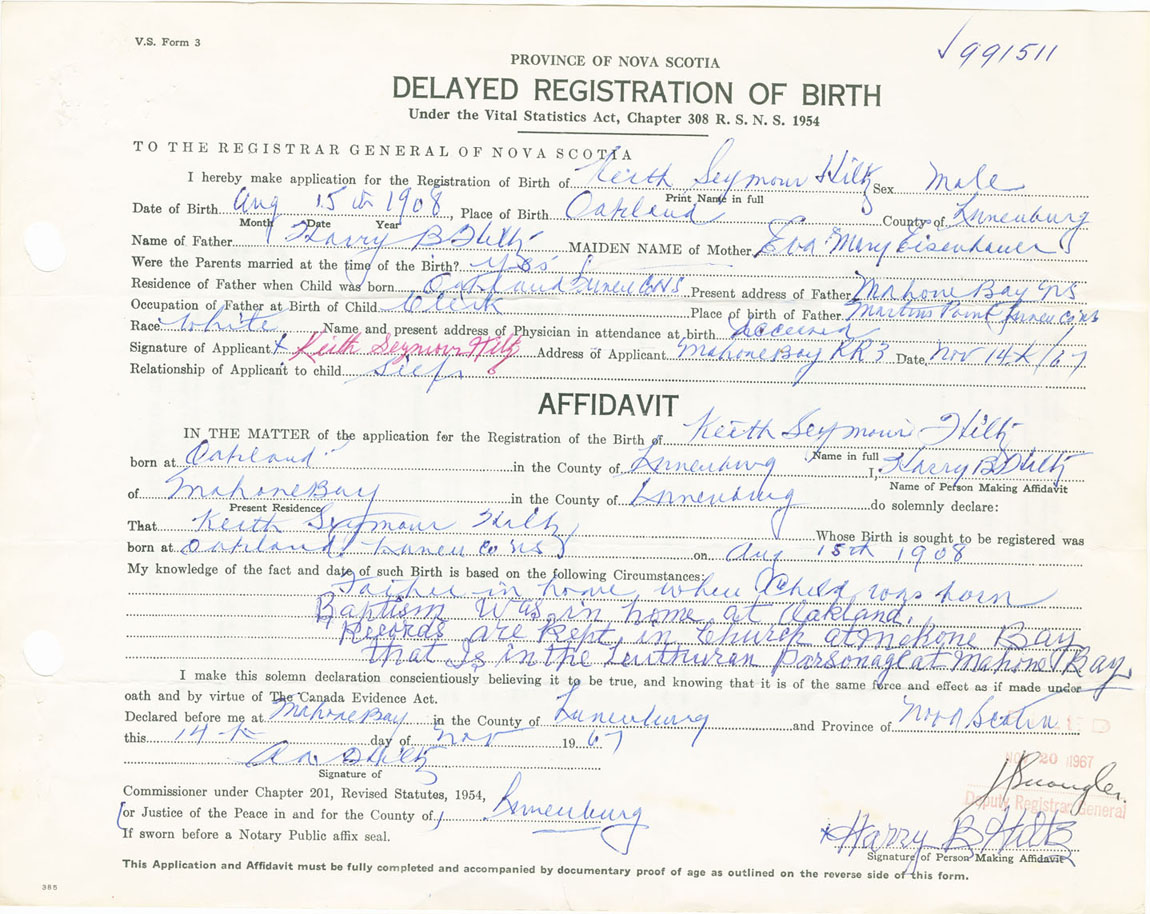 V.S. Form 3
991511
PROVINCE OF NOVA SCOTIA
DELAYED REGISTRATION OF BIRTH
Under the Vital Statistics Act, Chapter 308 R. S. N. S. 1954
TO THE REGISTRAR GENERAL OF NOVA SCOTIA
I hereby make application for the Registration of Birth of Keith Seymour Hiltz Sex Male
Print Name in full
Date of Birth Aug 15th 1908, Place of Birth Oakland County of Lunenburg
Month Date Year
Name of Father Harry B Hiltz MAIDEN NAME of Mother Eva Mary Eisenhauer
Were the Parents married at the time of the Birth? yes
Residence of Father when Child was born Oakland Lunen Co NS Present address of Father Mahone Bay NS
Occupation of Father at Birth of Child Clerk Place of birth of Father Martins Point Lunen Co NS
Race White Name and present address of Physician in attendance at birth deceased
Signature of Applicant x Keith Seymour Hiltz Address of Applicant Mahone Bay RR3 Date Nov 14th/67
Relationship of Applicant to child Self
AFFIDAVIT
IN THE MATTER of the application for the Registration of the Birth of Keith Seymour Hiltz
Name in full
born at Oakland in the County of Lunenburg I, Harry B Hiltz
Name of Person Making Affidavit
of Mahone Bay in the County of Lunenburg do solemnly declare:
Present Residence
That Keith Seymour Hiltz Whose Birth is sought to be registered was
born at Oakland Lunen Co NS on Aug 15th 1908
My knowledge of the fact and date of such Birth is based on the following Circumstances:
Father in home when Child was born
Baptism Was in home at Oakland.
Records are Kept in Church at Mahone Bay
that Is in the Leuthuran Parsonage at Mahone Bay.
I make this solemn declaration conscientiously believing it to be true, and knowing that it is of the same force and effect as if made under
oath and by virtue of The Canada Evidence Act.
Declared before me at Mahone Bay in the County of Lunenburg and Province of Nova Scotia
this 14th day of Nov 1967
Hiltz
NOV 20 1967
Signature of
Commissioner under Chapter 201, Revised Statutes, 1954,
Deputy Registrar General
(or Justice of the Peace in and for the County of) Lunenburg
If sworn before a Notary Public affix seal.
x Harry B Hiltz
Signature of Person Making Affidavit
This Application and Affidavit must be fully completed and accompanied by documentary proof of age as outlined on the reverse side of this form.
385